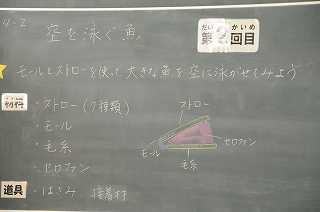 4-2
空を泳ぐ魚
だい かいめ
第2回目
モールとストローを使って大きな魚を空に泳がせてみよう
材料
・ストロー(7種類)
・モール
・毛糸
・セロファン
ストロー
モール
セロファン
毛糸
道具
・はさみ 接着材